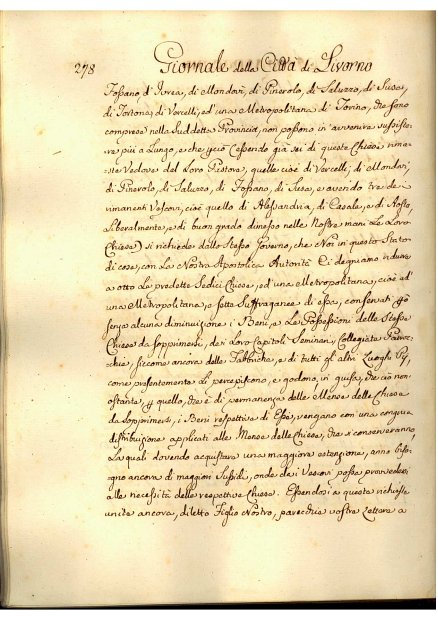 278 Giornale della Città di Livorno
Fossano, d'Ivrea, di Mondovì, di Pinerolo, di Saluzzo, di Susa,
di Tortona, di Vercelli, ed una Metropolitana di Torino, che sono
comprese nella Suddetta Provincia, non possono in avvenire sussiste-
re più a Lungo, e che perciò Essendo già sei di queste Chiese rima-
ste Vedove del Loro Pastore, quelle cioè di Vercelli, di Mondovì,
di Pinerolo, di Saluzzo, di Fossano, di Susa, e avendo tre de'
rimanenti Vescovi, cioè quello di Alessandria, di Casale, e di Aosta,
Liberalmente, e di buon grado dimesso nelle Nostre mani Le Loro
Chiese) si richiede dallo Stesso Governo, che Noi in questo Stato
di cose, con La Nostra Apostolica Autorità Ci degniamo ridurre
a otto Le predette Sedici Chiese, ed una Metropolitana, cioè ad
una Metropolitana, e sette Suffraganee di essa, conservati però
senza alcuna diminuzione i Beni, e Le Possessioni delle Stesse
Chiese da sopprimersi, dei Loro Capitoli Seminari, Collegiate Parroc-
chie, siccome ancora delle Fabbriche, e di tutti gli altri Luoghi Pij,
come presentemente Li percepiscono, e godono, in guisa, che ciò non
ostante, per quello, che è di permanenza delle Mense delle Chiese
da sopprimersi, i Beni respettivi di Esse, vengano con una congrua
distribuzione applicati alle Mense delle Chiese, che si conserveranno,
La quali dovendo acquistare una maggiore estensione, anno biso-
gno ancora di maggiori Sussidi, onde da i Vescovi possa provvedersi
alle necessità delle respettive Chiese. Essendosi a queste richieste
unite ancora, diletto Figlio Nostro, parecchie vostre Lettere a